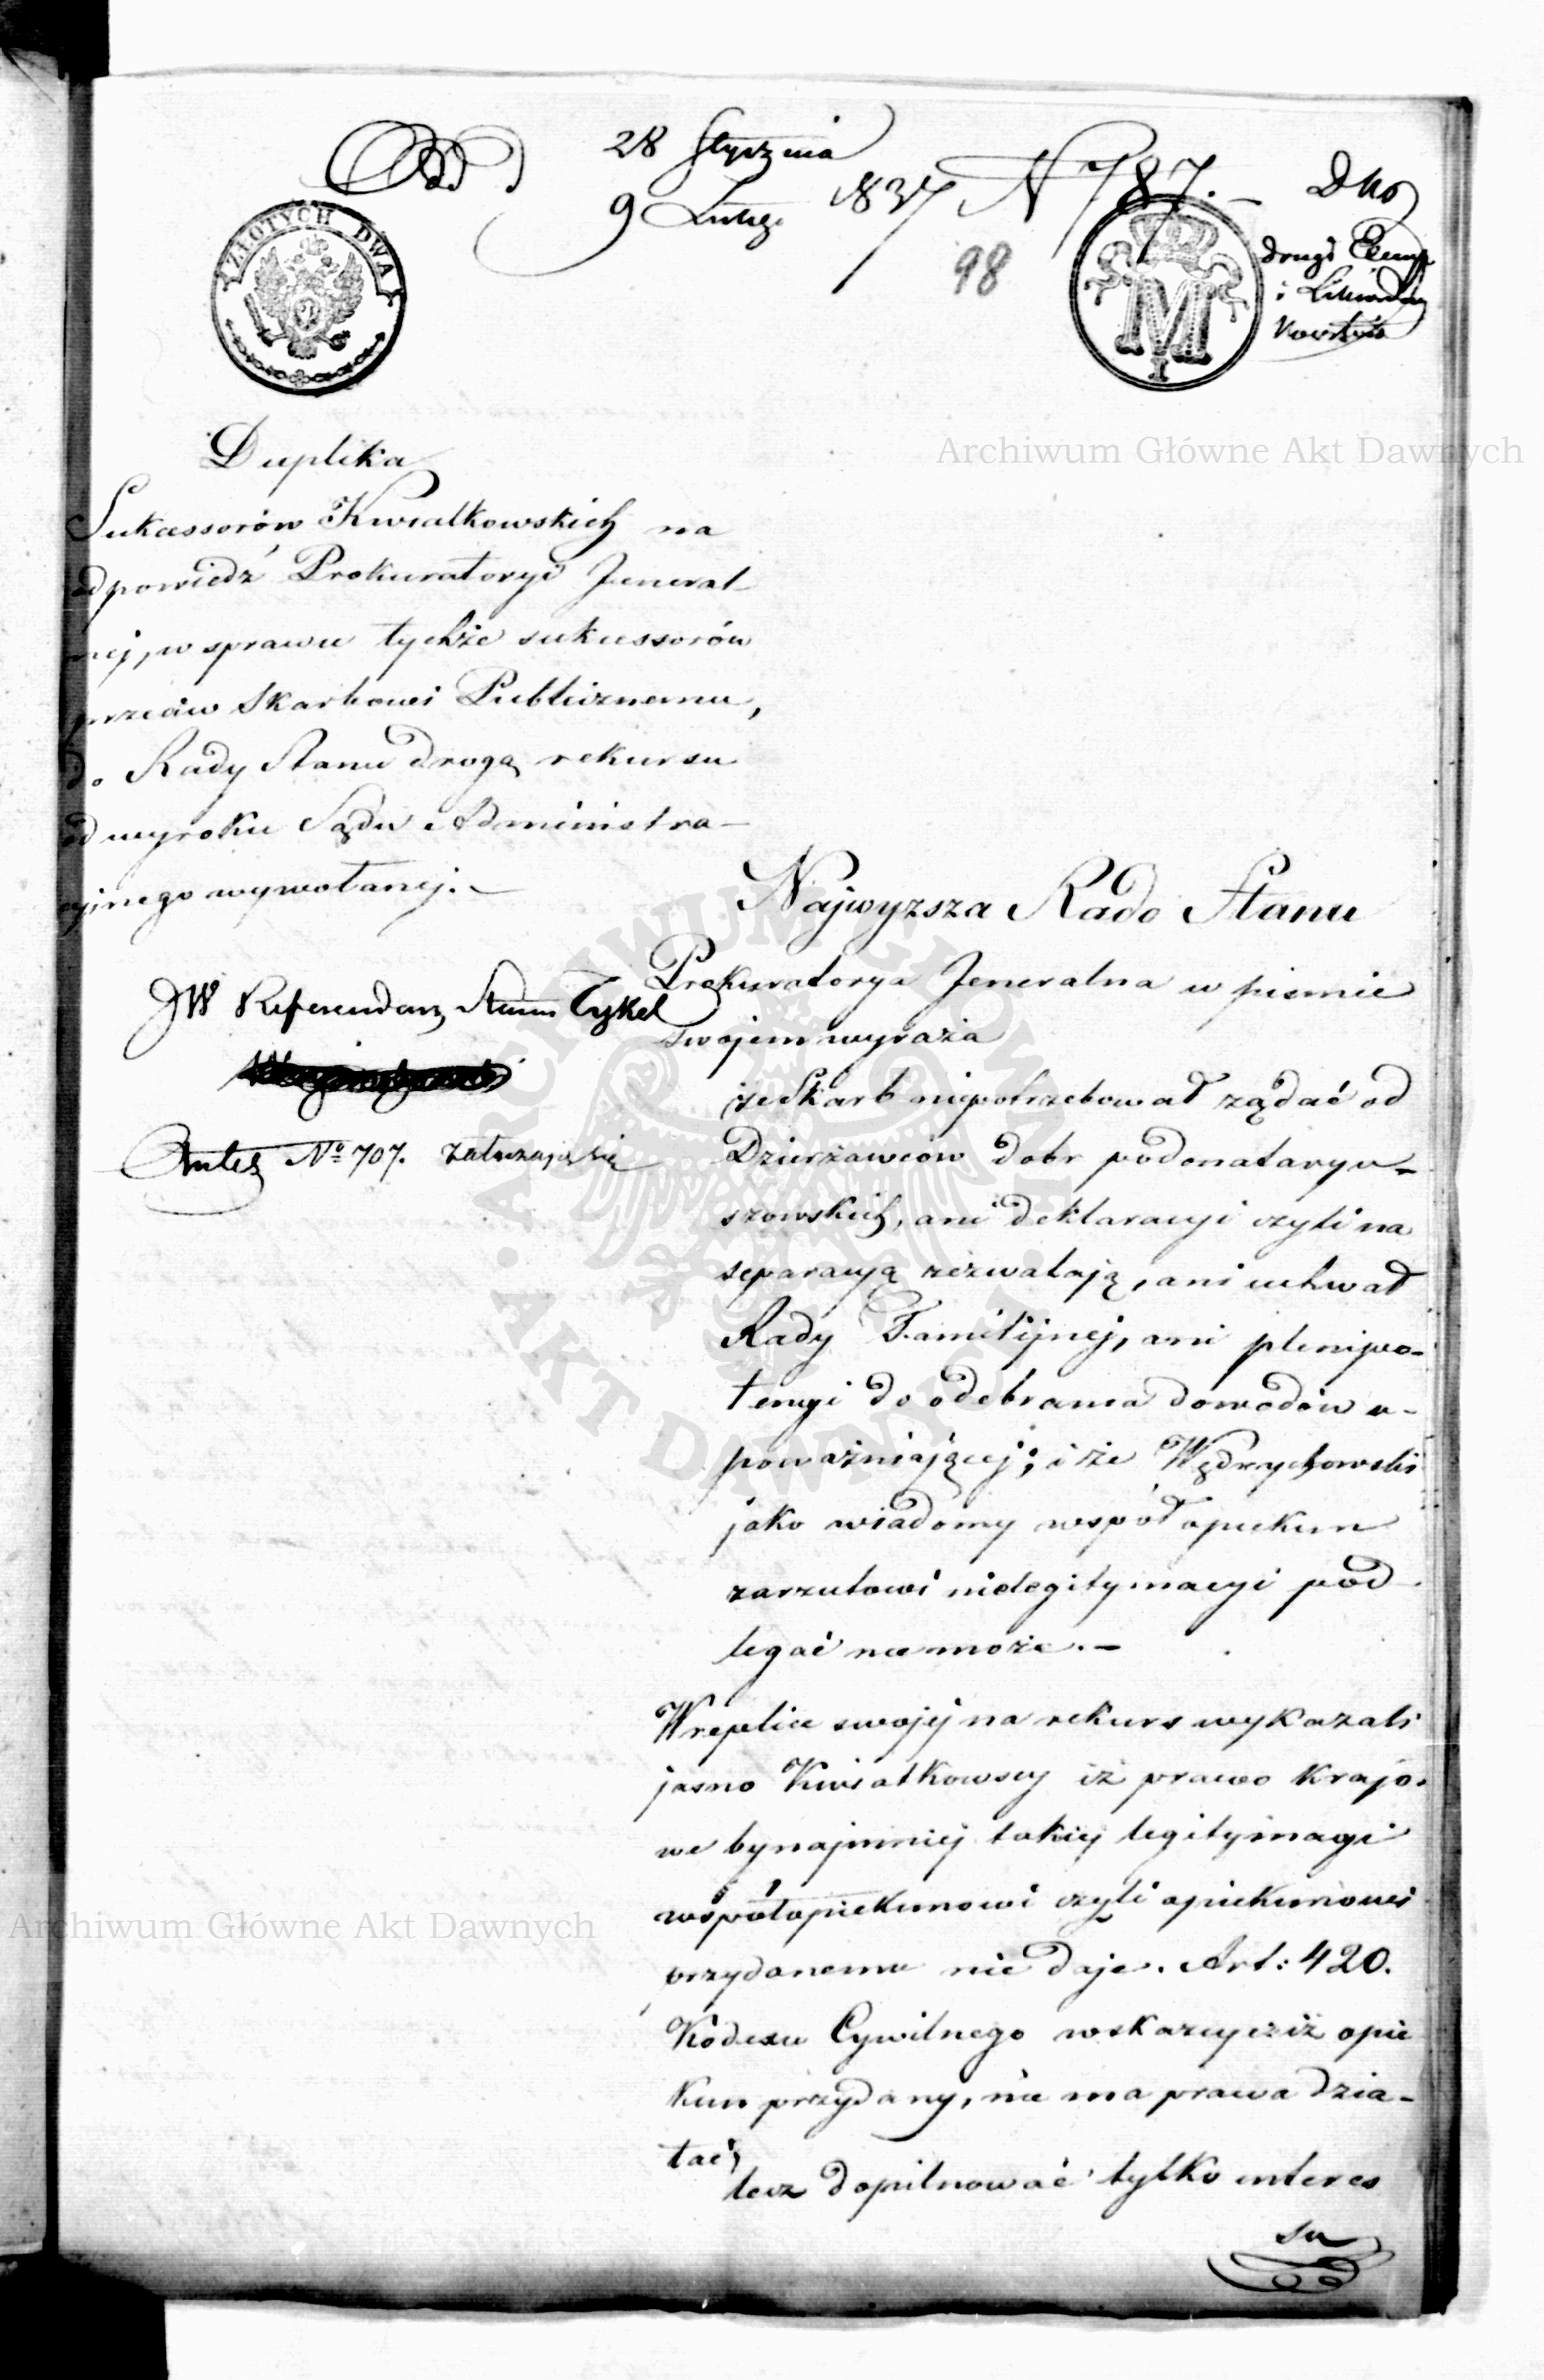 28 Stycznia
9 Lutego 1837 N 787. –
98
Dko
drugi Exemp
i
ZŁOTYCH DWA
M
I
Duplika
Sukcessorów Kwiatkowskich na
odpowiedź Prokuratoryi Jeneral-
nej, w sprawie tychże sukcessorów
przeciw Skarbowi Publicznemu,
do Rady Stanu drogą rekursu
od wyroku Sądu Administra-
cyjnego wywołanej. –
JW Referendarz Stanu Tykel
Antes No 707. załączający się
Najwyzsza Rado Stanu
Prokuratorya Jeneralna w piśmie
swojem wyraża
że Skarb niepotrzebował ządać od
Dzierżawców dobr podonataryu-
szowskich, ani deklaracyi czyli na
separacyą zezwalają, ani uchwał
Rady Familijnej, ani plenipo-
tencyi do odebrania dowodów u-
poważniającej; i że Wędrychowski
jako wiadomy współopiekun
zarzutowi nielegitymacyi pod-
legać niemoże. –
W replice swojej na rekurs wykazali
jasno Kwiatkowscy iż prawo krajo-
we bynajmniej takiej legitymacyi
współopiekunowi czyli opiekunowi
przydanemu nie daje. Art: 420.
Kodexu Cywilnego wskazuje iż opie
kun przydany, nie ma prawa dzia-
łać,
lecz dopilnować tylko interes
su
Archiwum Główne Akt Dawnych
Archiwum Główne Akt Dawnych
ARCHIWUM GŁÓWNE AKT DAWNYCH